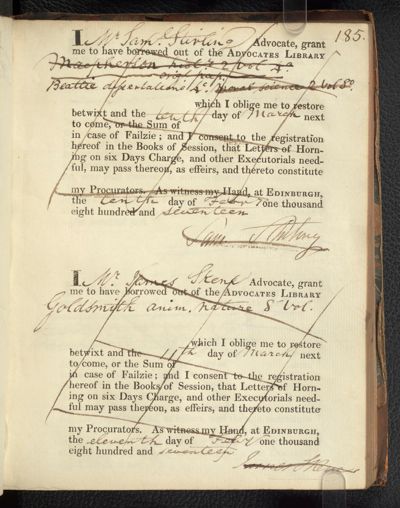 185.
I, Mr. Saml. Stirling Advocate, grant
me to have borrowed out of the ADVOCATES LIBRARY
Macpherson hist. 2 vol. 4o.
orig. pap.
Beattie dissertations 4o. moral science 2 vol 8o.
which I oblige me to restore
betwixt and the tenth day of March next
to come, or the Sum of
in case of Failzie; and I consent to the registration
hereof in the Books of Session, that Letters of Horn-
ing on six Days Charge, and other Executorials need-
ful, may pass thereon, as effeirs, and thereto constitute
my Procurators. As witness my Hand, at EDINBURGH,
the tenth day of Febry one thousand
eight hundred and seventeen
Saml. Stirling
I, Mr. James Skene Advocate, grant
me to have borrowed out of the ADVOCATES LIBRARY
Goldsmith anim. nature 8 vol.
which I oblige me to restore
betwixt and the 11th day of March next
to come, or the Sum of
in case of Failzie; and I consent to the registration
hereof in the Books of Session, that Letters of Horn-
ing on six Days Charge, and other Executorials need-
ful may pass thereon, as effeirs, and thereto constitute
my Procurators. As witness my Hand, at EDINBURGH,
the eleventh day of Febry one thousand
eight hundred and seventeen
James Skene